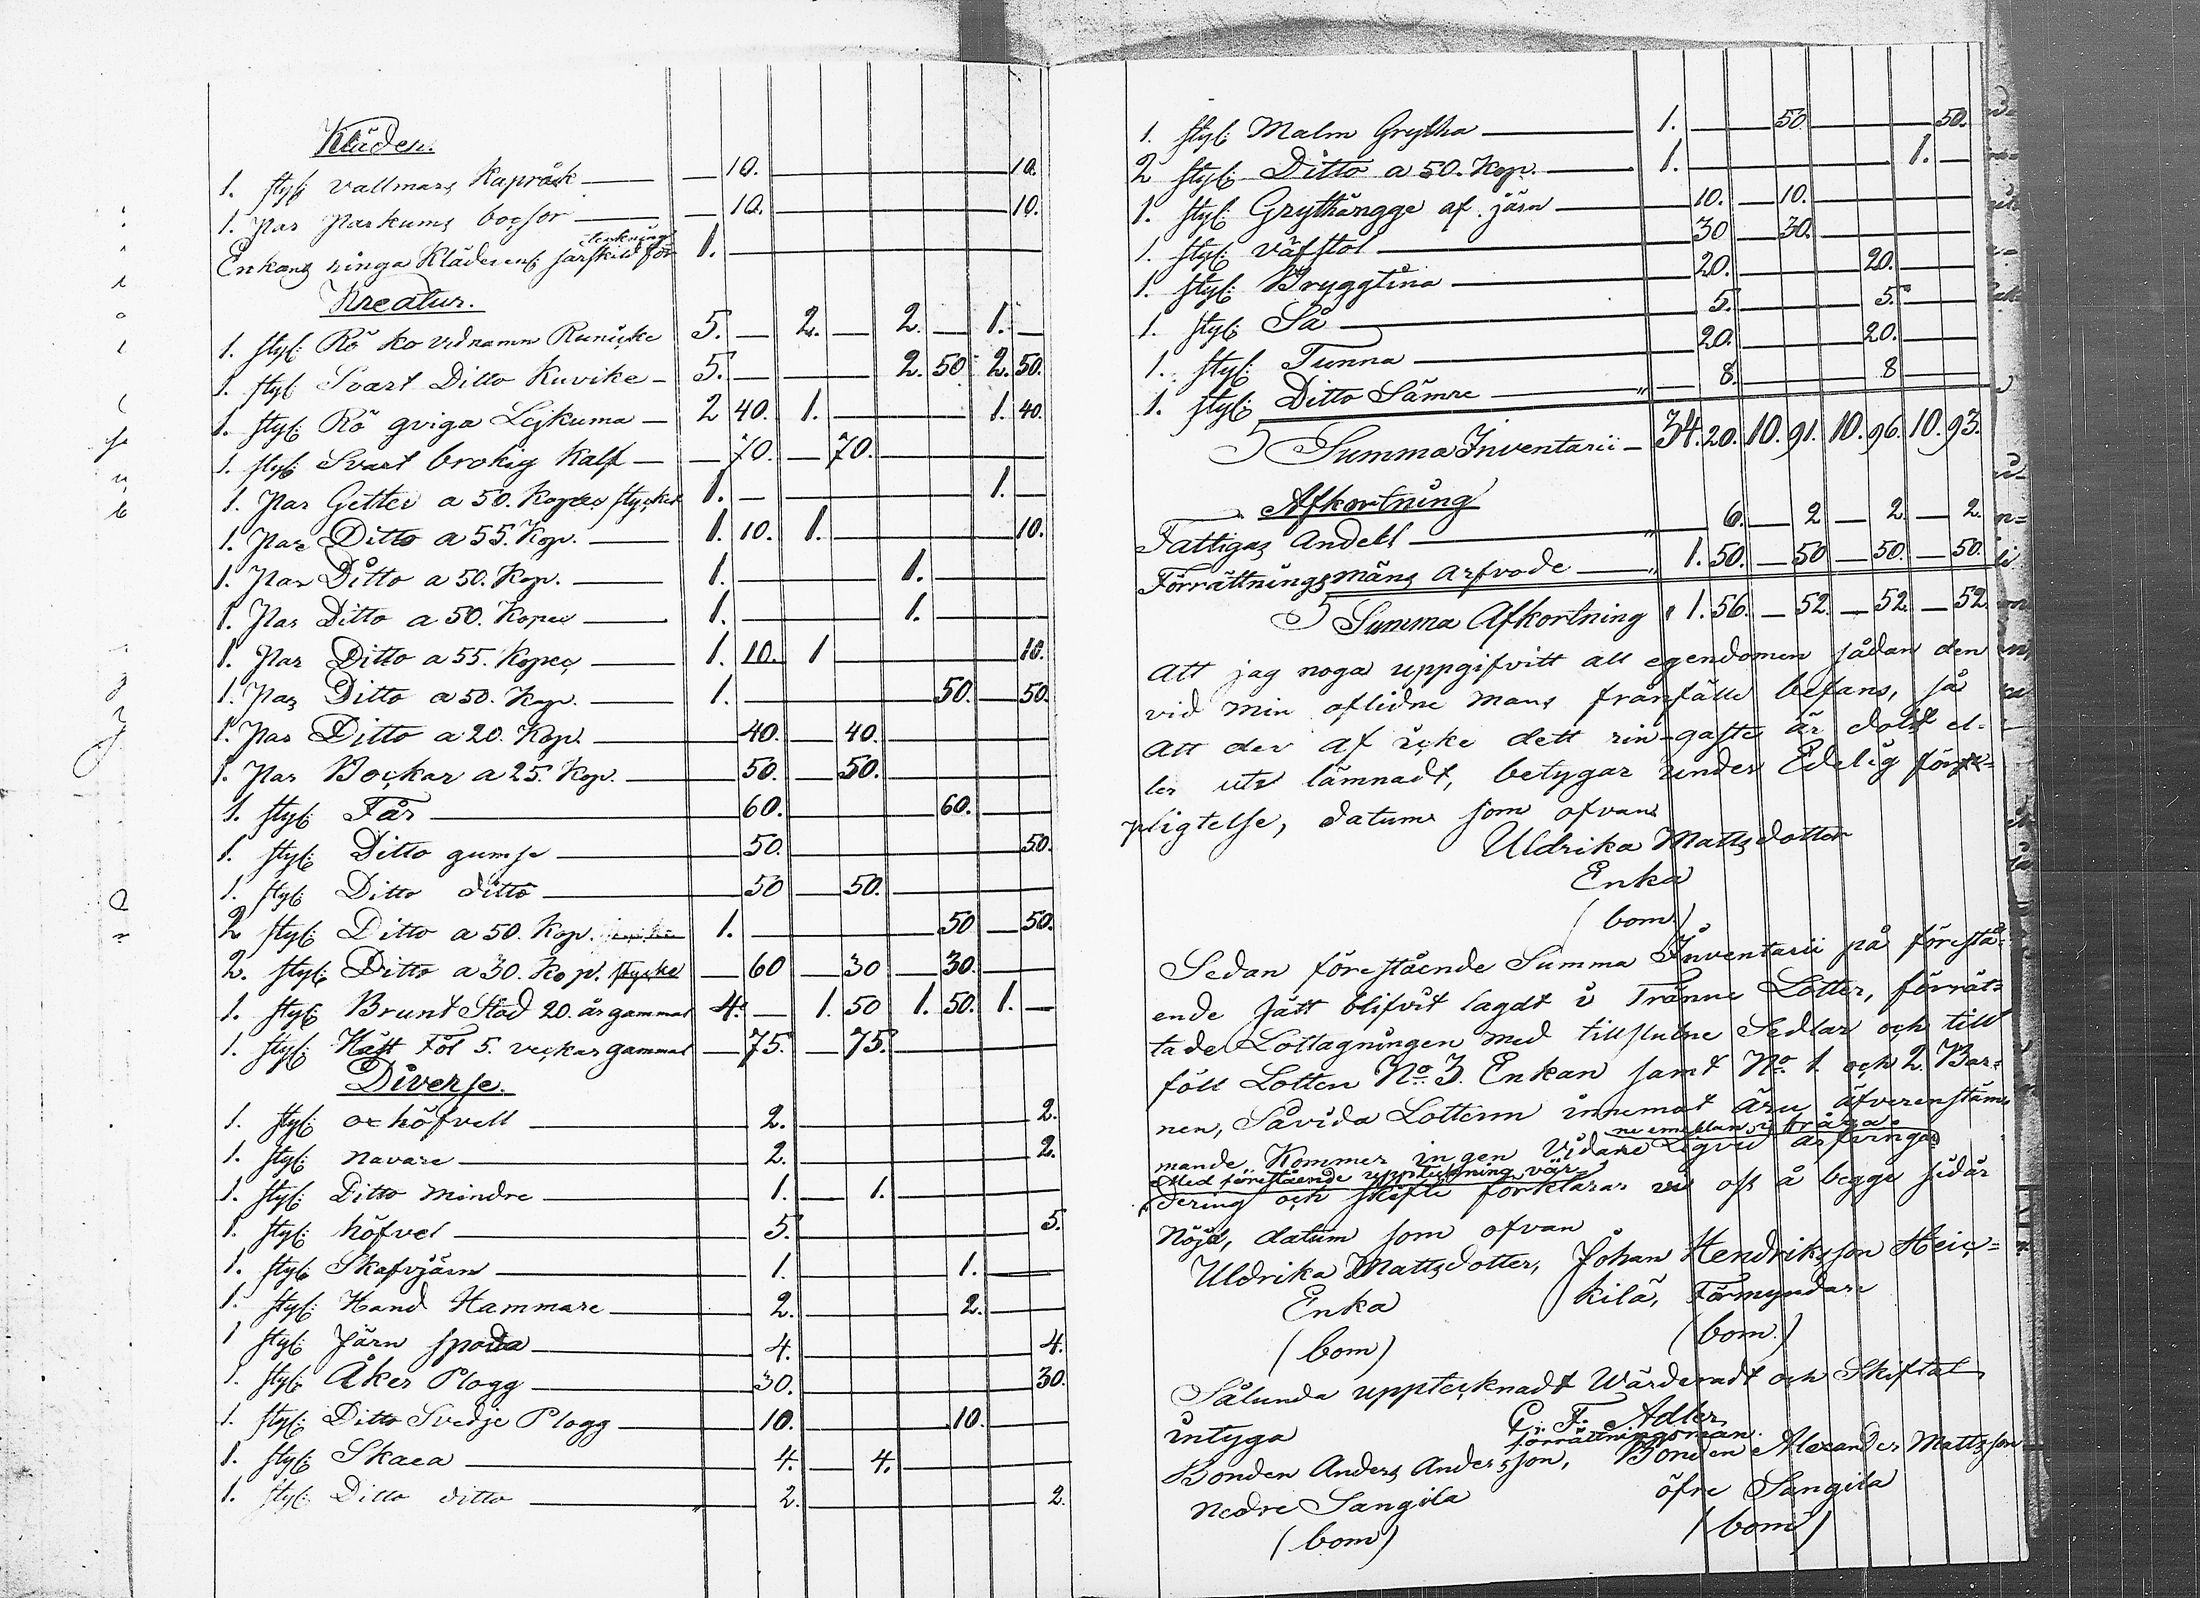 Kläden.
1. styk: vallmars Kapråk — 10. — 10.
1. Par Parkums boxsor — 10. — 10.
teckning
Enkans ringa Kläder enl: särskild för 1. —
Kreatur.
1. styk: Rö Ko vid namn Runicke 5. — 2. — 2. — 1. —
1. styk: Svart Ditto Kuvike — 5. — 2. 50. 2. 50.
1. styk: Rö qviga Lejkuma — 2 40. 1. — 1. 40.
1. styk: Svart brokig Kalf — 70. — 70. —
1. Par Getter a 50. Kopec stycket 1. — 1. —
1. Par Ditto a 55. Kop. — 1. 10. 1. — 10.
1. Par Ditto a 50. Kop. — 1. — 1. —
1. Par Ditto a 50. Kopec — 1. — 1. —
1. Par Ditto a 55. Kopec — 1. 10. 1 — 10.
1. Par Ditto a 50. Kop. — 1. — 50. — 50.
1. Par Ditto a 20. Kop. — 40. — 40. —
1. Par Bockar a 25. Kop. — 50. — 50. —
1. styk: Får — 60. — 60. —
1. styk: Ditto gumse — 50. — 50.
1. styk: Ditto ditto — 50 — 50. —
2 styk: Ditto a 50. Kop. 1. — 50 — 50.
2. styk: Ditto a 30. Kop. stycke — 60 — 30 — 30. —
1. styk: Brunt Stod 20. år gammat 4. — 1. 50 1. 50. 1. —
1. styk: Häst Föl 5. veckar gammat — 75. — 75. —
Diverse.
1. styk: oxhöfvell — 2. — 2.
1. styk: navare — 2. — 2.
1. styk: Ditto mindre — 1. — 1. —
1. styk: höfvel — 5. — 5.
1. styk: Skafvjärn — 1. — 1. —
1. styk: Hand Hammare — 2. — 2. —
1 styk: Järn spada — 4. — 4.
1. styk: Åker Plogg — 30. — 30.
1. styk: Ditto Svedje Plogg — 10. — 10. —
1. styk: Skaea — 4. — 4. —
1. styk: Ditto ditto — 2. — 2.
1. styk: Malm Grytha — 1. — 50 — 50.
2 styk: Ditto a 50. Kop. — 1. — 1. —
1. styk: Grythängge af järn — 10. — 10. —
1. styk: väfstol — 30 — 30. —
1. styk: Bryggtina — 20. — 20. —
1. styk: Så — 5. — 5. —
1. styk: Tunna — 20. — 20. —
1. styk: Ditto Sämre — 8. — 8 —
Summa Inventarii — 34. 20. 10. 91. 10. 96. 10. 93.
Afkortning
Fattigas Andehl — 6. — 2 — 2 — 2.
Förrättningsmäns arfvode — 1. 50. — 50 — 50. — 50.
Summa Afkortning 1. 56. — 52. — 52 — 52.
Att jag noga uppgifvitt all egendomen sådan den
vid min aflidne mans frånfälle befans, så
Att der af icke dett rin-gaste är dolt el-
ler ute lämnadt, betygar under Edelig för-
pligtelse, datum som ofvan
Uldrika Mattsdotter
Enka
(bom)
Sedan förestående Summa Inventarii på förestå-
ende sätt blifvit lagdt i Tränne Lotter, förrät-
tade Lottagningen med tillslutne Sedlar och till
föll Lotten No. 3. Enkan samt No. 1. och 2. Bar-
nen, Såvida Lotterm innemot äru äfverenstäm-
ne emellan i fråga
mande, Kommer ingen Vidare Ligvid arfvingar
Med förestående uppteckning vär-
dering och skifte förklarar vi oss å begge sidär
Nöjd, datum som ofvan
Uldrika Mattsdotter, Johan Hendriksson Heic-
Enka kilä, Förmyndare
(bom) (bom.)
Sålunda upptecknadt Wärderadt och Skiftat
intyga G: F: Adler
förrättningsman.
Bonden Anders Andersson, Bonden Alexander Mattsson
nedre Sangila öfre Sangila
(bom) (bom)